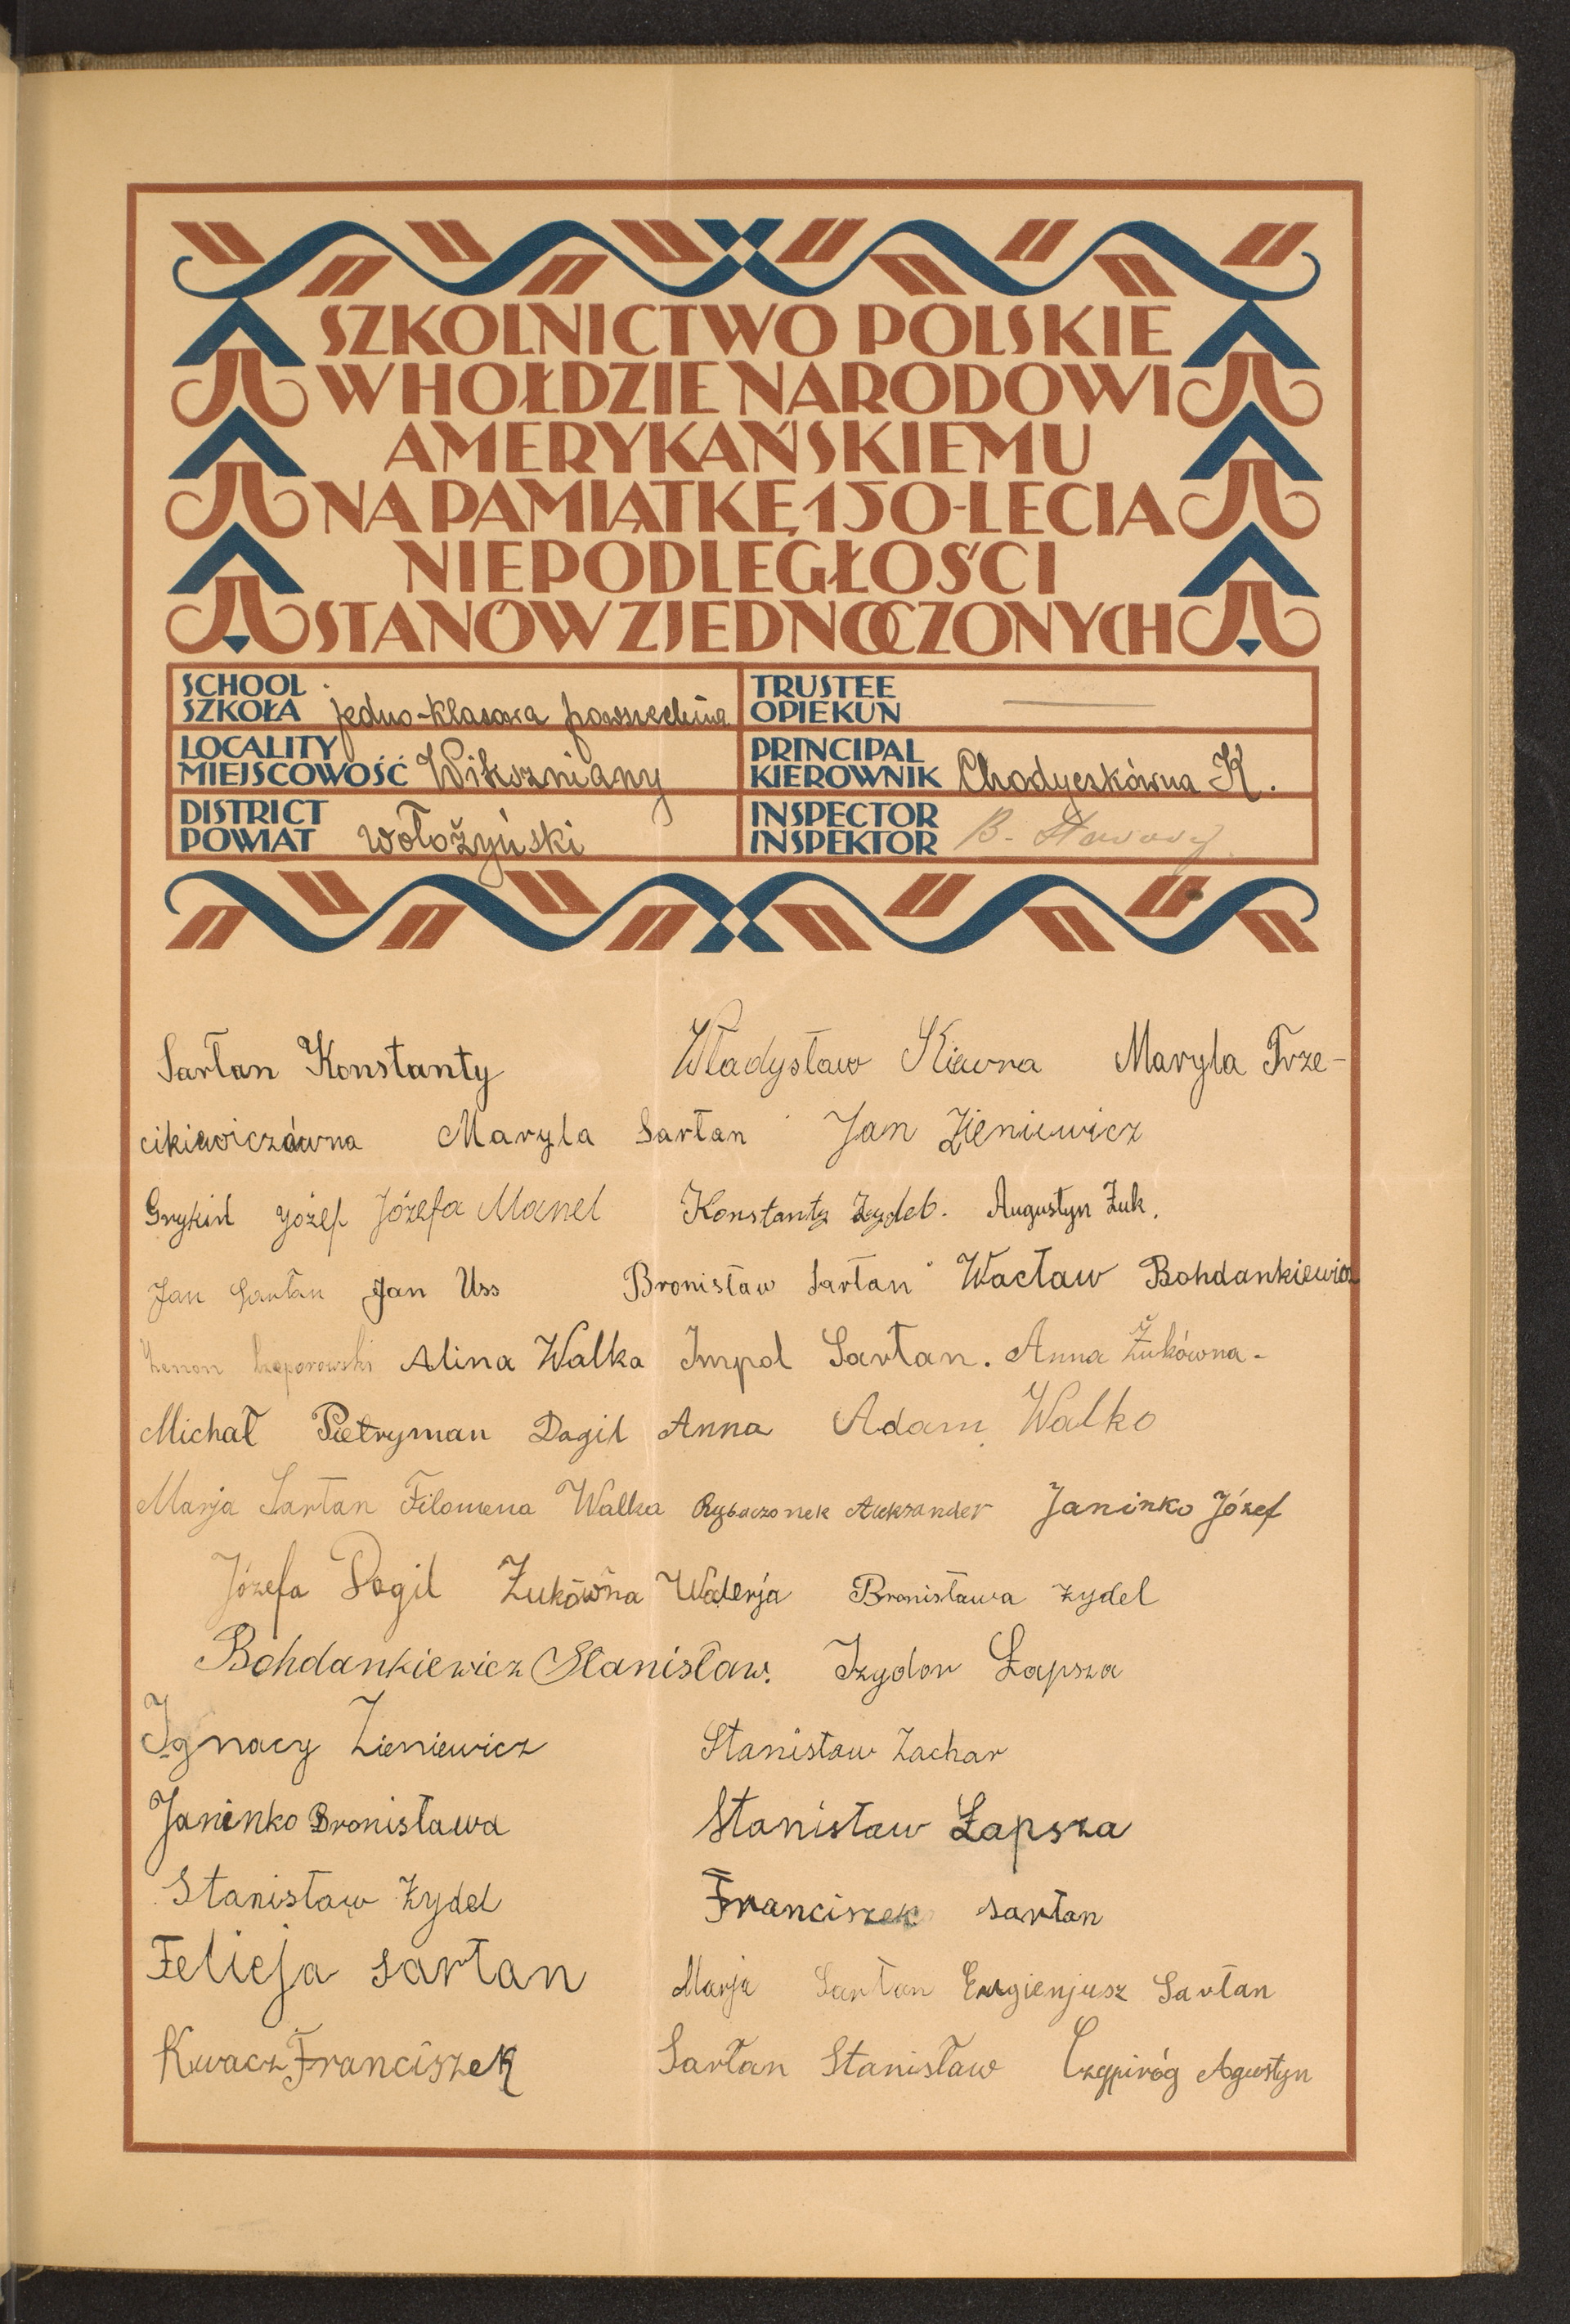 SZKOLNICTWO POLSKIE
W HOŁDZIE NARODOWI
AMERYKAŃSKIEMU
NA PAMIĄTKĘ 150-LECIA
NIEPODLEGŁOŚCI
STANÓW ZJEDNOCZONYCH
SCHOOL
SZKOŁA jedno-klasowa powszechna
TRUSTEE
OPIEKUN
LOCALITY
MIEJSCOWOŚĆ Wikszniany
PRINCIPAL
KIEROWNIK Chodyczkówna K.
DISTRICT
POWIAT wołożyński
INSPECTOR
INSPEKTOR B.
Sartan Konstanty Władysław Kiewra Maryla Trze-
cikiewiczówna Maryla Sartan Jan Zieniewicz
Grykin Józef Józefa Manel Konstanty Zydel. Augustyn Żuk.
Jan Sartan Jan Uss Bronisław Sartan Wacław Bohdankiewicz
Zenon Alina Walka Sartan. Anna Żukówna-
Michał Pietryman Dagil Anna Adam Walko
Marja Sartan Filomena Walka Rybaczonek Aleksander Janinko Józef
Józefa Dagil Żukówna Walerja Bronisława Zydel
Bohdankiewicz Stanisław. Izydor Łapsza
Ignacy Zieniewicz Stanisław Zachar
Janinko Bronisława Stanisław Łapsza
Stanisław Zydel Franciszek sartan
Felicja sartan Marja Sartan Eugienjusz Sartan
Kwacz Franciszek Sartan Stanisław Czypiróg Agustyn